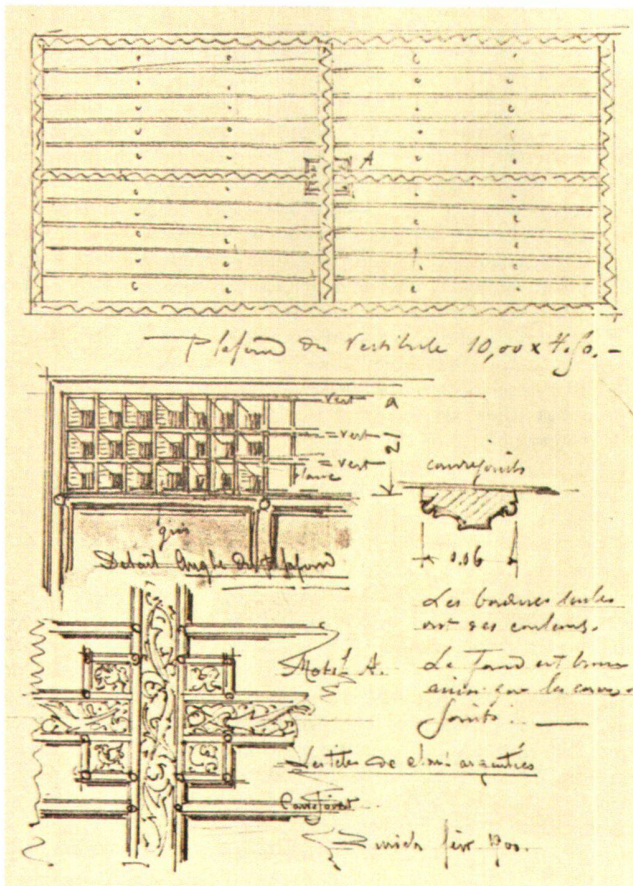 A
Plafond du Vestibule 10,00 x 4,50. -
vert
vert
vert
blanc
couvrejoints
gris
Detail Angle du Plafond
0.06
Les bordures seules
ont des couleurs.
Motif A.
Le fond est brun
ainsi que les couvre-
joints.
Les têtes de clous argentées
Couvrejoint
Zurich févr 1900.